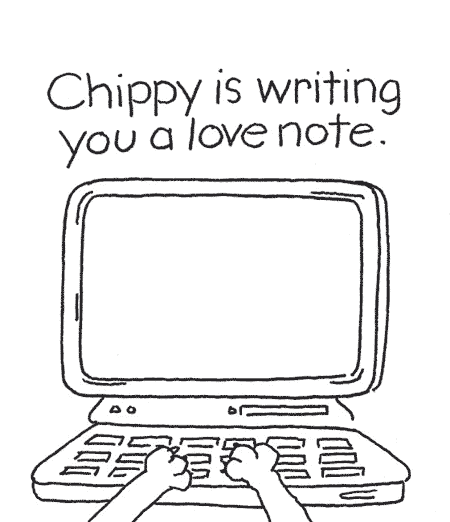 Chippy is writing
you a love note.